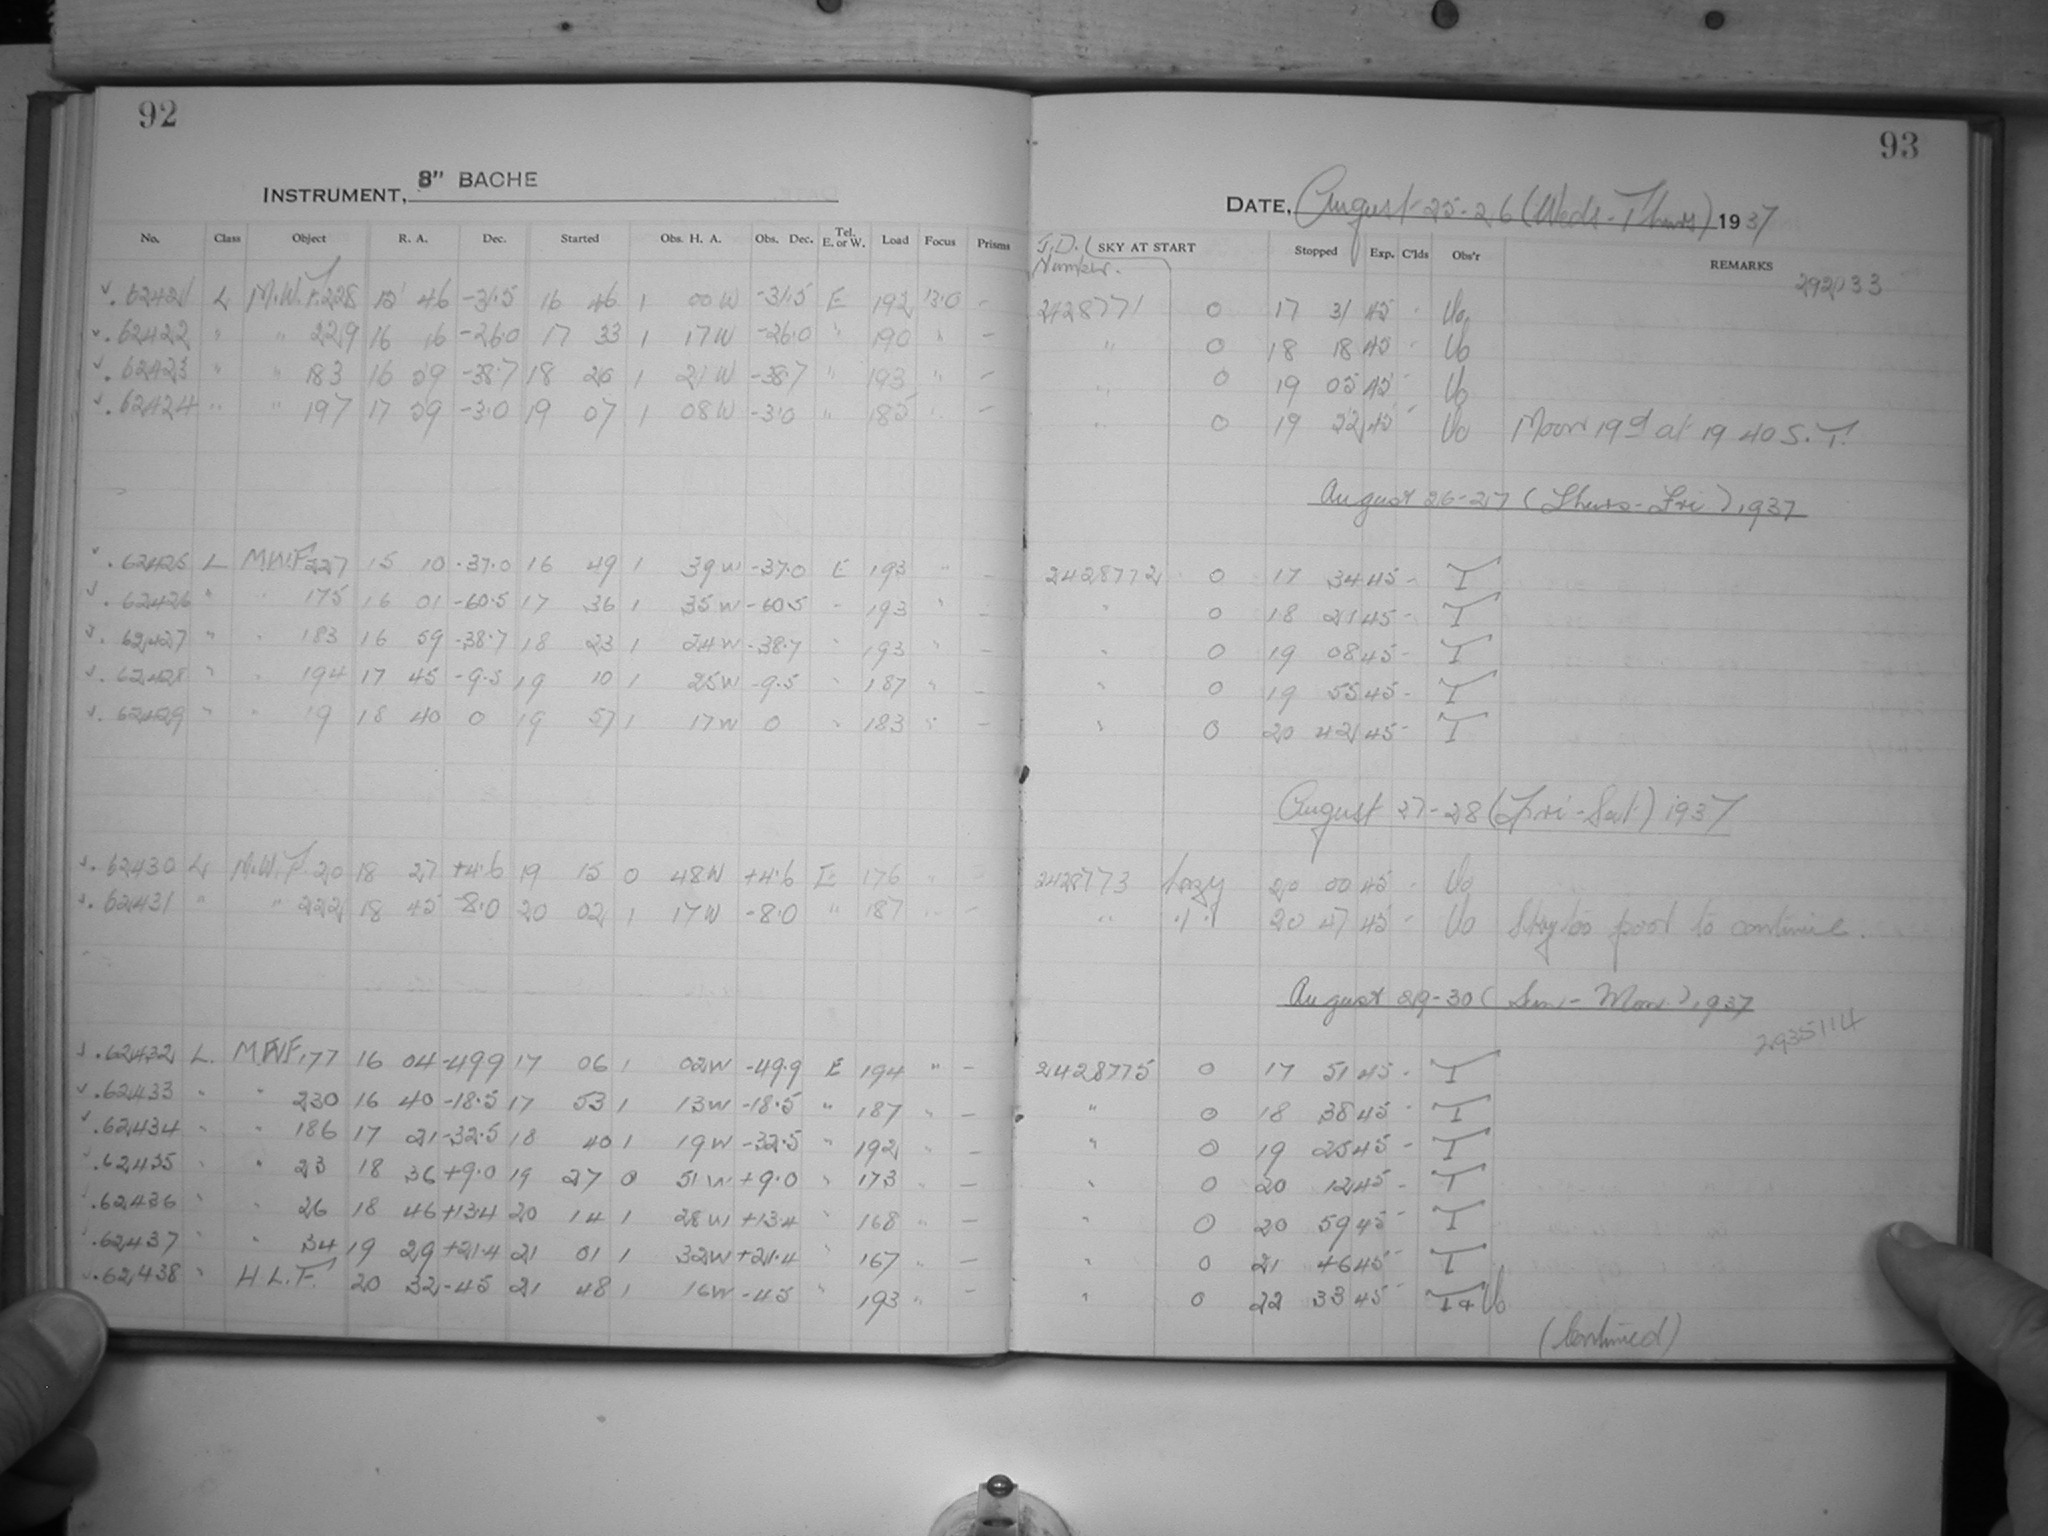 92
INSTRUMENT, 8" BACHE
No. Class Object R. A. Dec. Started Obs. H. A. Obs. Dec. Tel. E. or W. Load Focus Prisms
√ . 62421 L M.W.F. 228 15 46 -31.5 16 46 1 00W -31.5 E 192 13.0 -
√ . 62422 " " 229 16 16 -26.0 17 33 1 17W -26.0 " 190 " -
√ . 62423 " " 183 16 59 -38.7 18 20 1 21W -38.7 " 193 " -
√ . 62424 " " 197 17 59 -3.0 19 07 1 08W -3.0 " 185 " -
√ . 62425 L M.W.F. 227 15 10 -37.0 16 49 1 39W -37.0 E 193 " -
√ . 62426 " " 175 16 01 -60.5 17 36 1 35W -60.5 " 193 " -
√ . 62427 " " 183 16 59 -38.7 18 23 1 24W -38.7 " 193 " -
√ . 62428 " " 194 17 45 -9.5 19 10 1 25W -9.5 " 187 " -
√ . 62429 " " 19 18 40 0 19 57 1 17W 0 " 183 " -
√ . 62430 L M.W.F. 20 18 27 +4.6 19 15 0 48W +4.6 E 176 " -
√ . 62431 " " 222 18 45 -8.0 20 02 1 17W -8.0 " 187 " -
√ . 62432 L. M.W.F. 177 16 04 -49.9 17 06 1 02W -49.9 E 194 " -
√ . 62433 " " 230 16 40 -18.5 17 53 1 13W -18.5 " 187 " -
√ . 62434 " " 186 17 21 -32.5 18 40 1 19W -32.5 " 192 " -
√ . 62435 " " 23 18 36 +9.0 19 27 0 51W +9.0 " 173 " -
√ . 62436 " " 26 18 46 +13.4 20 14 1 28W +13.4 " 168 " -
√ . 62437 " " 34 19 29 +21.4 21 01 1 32W +21.4 " 167 " -
√ . 62438 " H.L.F. 20 32 -45 21 48 1 16W -45 " 193 " -
93
DATE, August 25-26 (Weds-Thurs) 1937
J.D. Number. SKY AT START Stopped Exp. C'lds Obs'r REMARKS
292033
2428771 0 17 31 45 - Uo
" 0 18 18 45 - Uo
" 0 19 05 45 - Uo
" 0 19 52 45 - Uo Moon 19d at 19 40 S.T.
August 26-27 (Thurs-Fri), 1937
2428772 0 17 34 45 - T
" 0 18 21 45 - T
" 0 19 08 45 - T
" 0 19 55 45 - T
" 0 20 42 45 - T
August 27-28 (Fri-Sat) 1937
2428773 hazy 20 00 45 - Uo
" " 20 47 45 - Uo Sky too poor to continue.
August 29-30 (Sun-Mon), 1937
2935114
2428775 0 17 51 45 - T
" 0 18 38 45 - T
" 0 19 25 45 - T
" 0 20 12 45 - T
" 0 20 59 45 - T
" 0 21 46 45 - T
" 0 22 33 45 - T + Uo
(Continued)